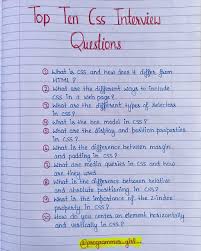 Top Ten Css Interview
Questions
① What is CSS and how does it differ from
HTML?
② What are the different ways to include
CSS in a web page?
③ What are the different types of selectors
in CSS?
④ What is the box model in CSS?
⑤ What are the display and position properties
in CSS?
⑥ What is the difference between margin
and padding in CSS?
⑦ What are media queries in CSS and how
are they used?
⑧ What is the difference between relative
and absolute positioning in CSS?
⑨ What is the importance of the z-index
property in CSS?
⑩ How do you center an element horizontally
and vertically in CSS?
@programmer_girl